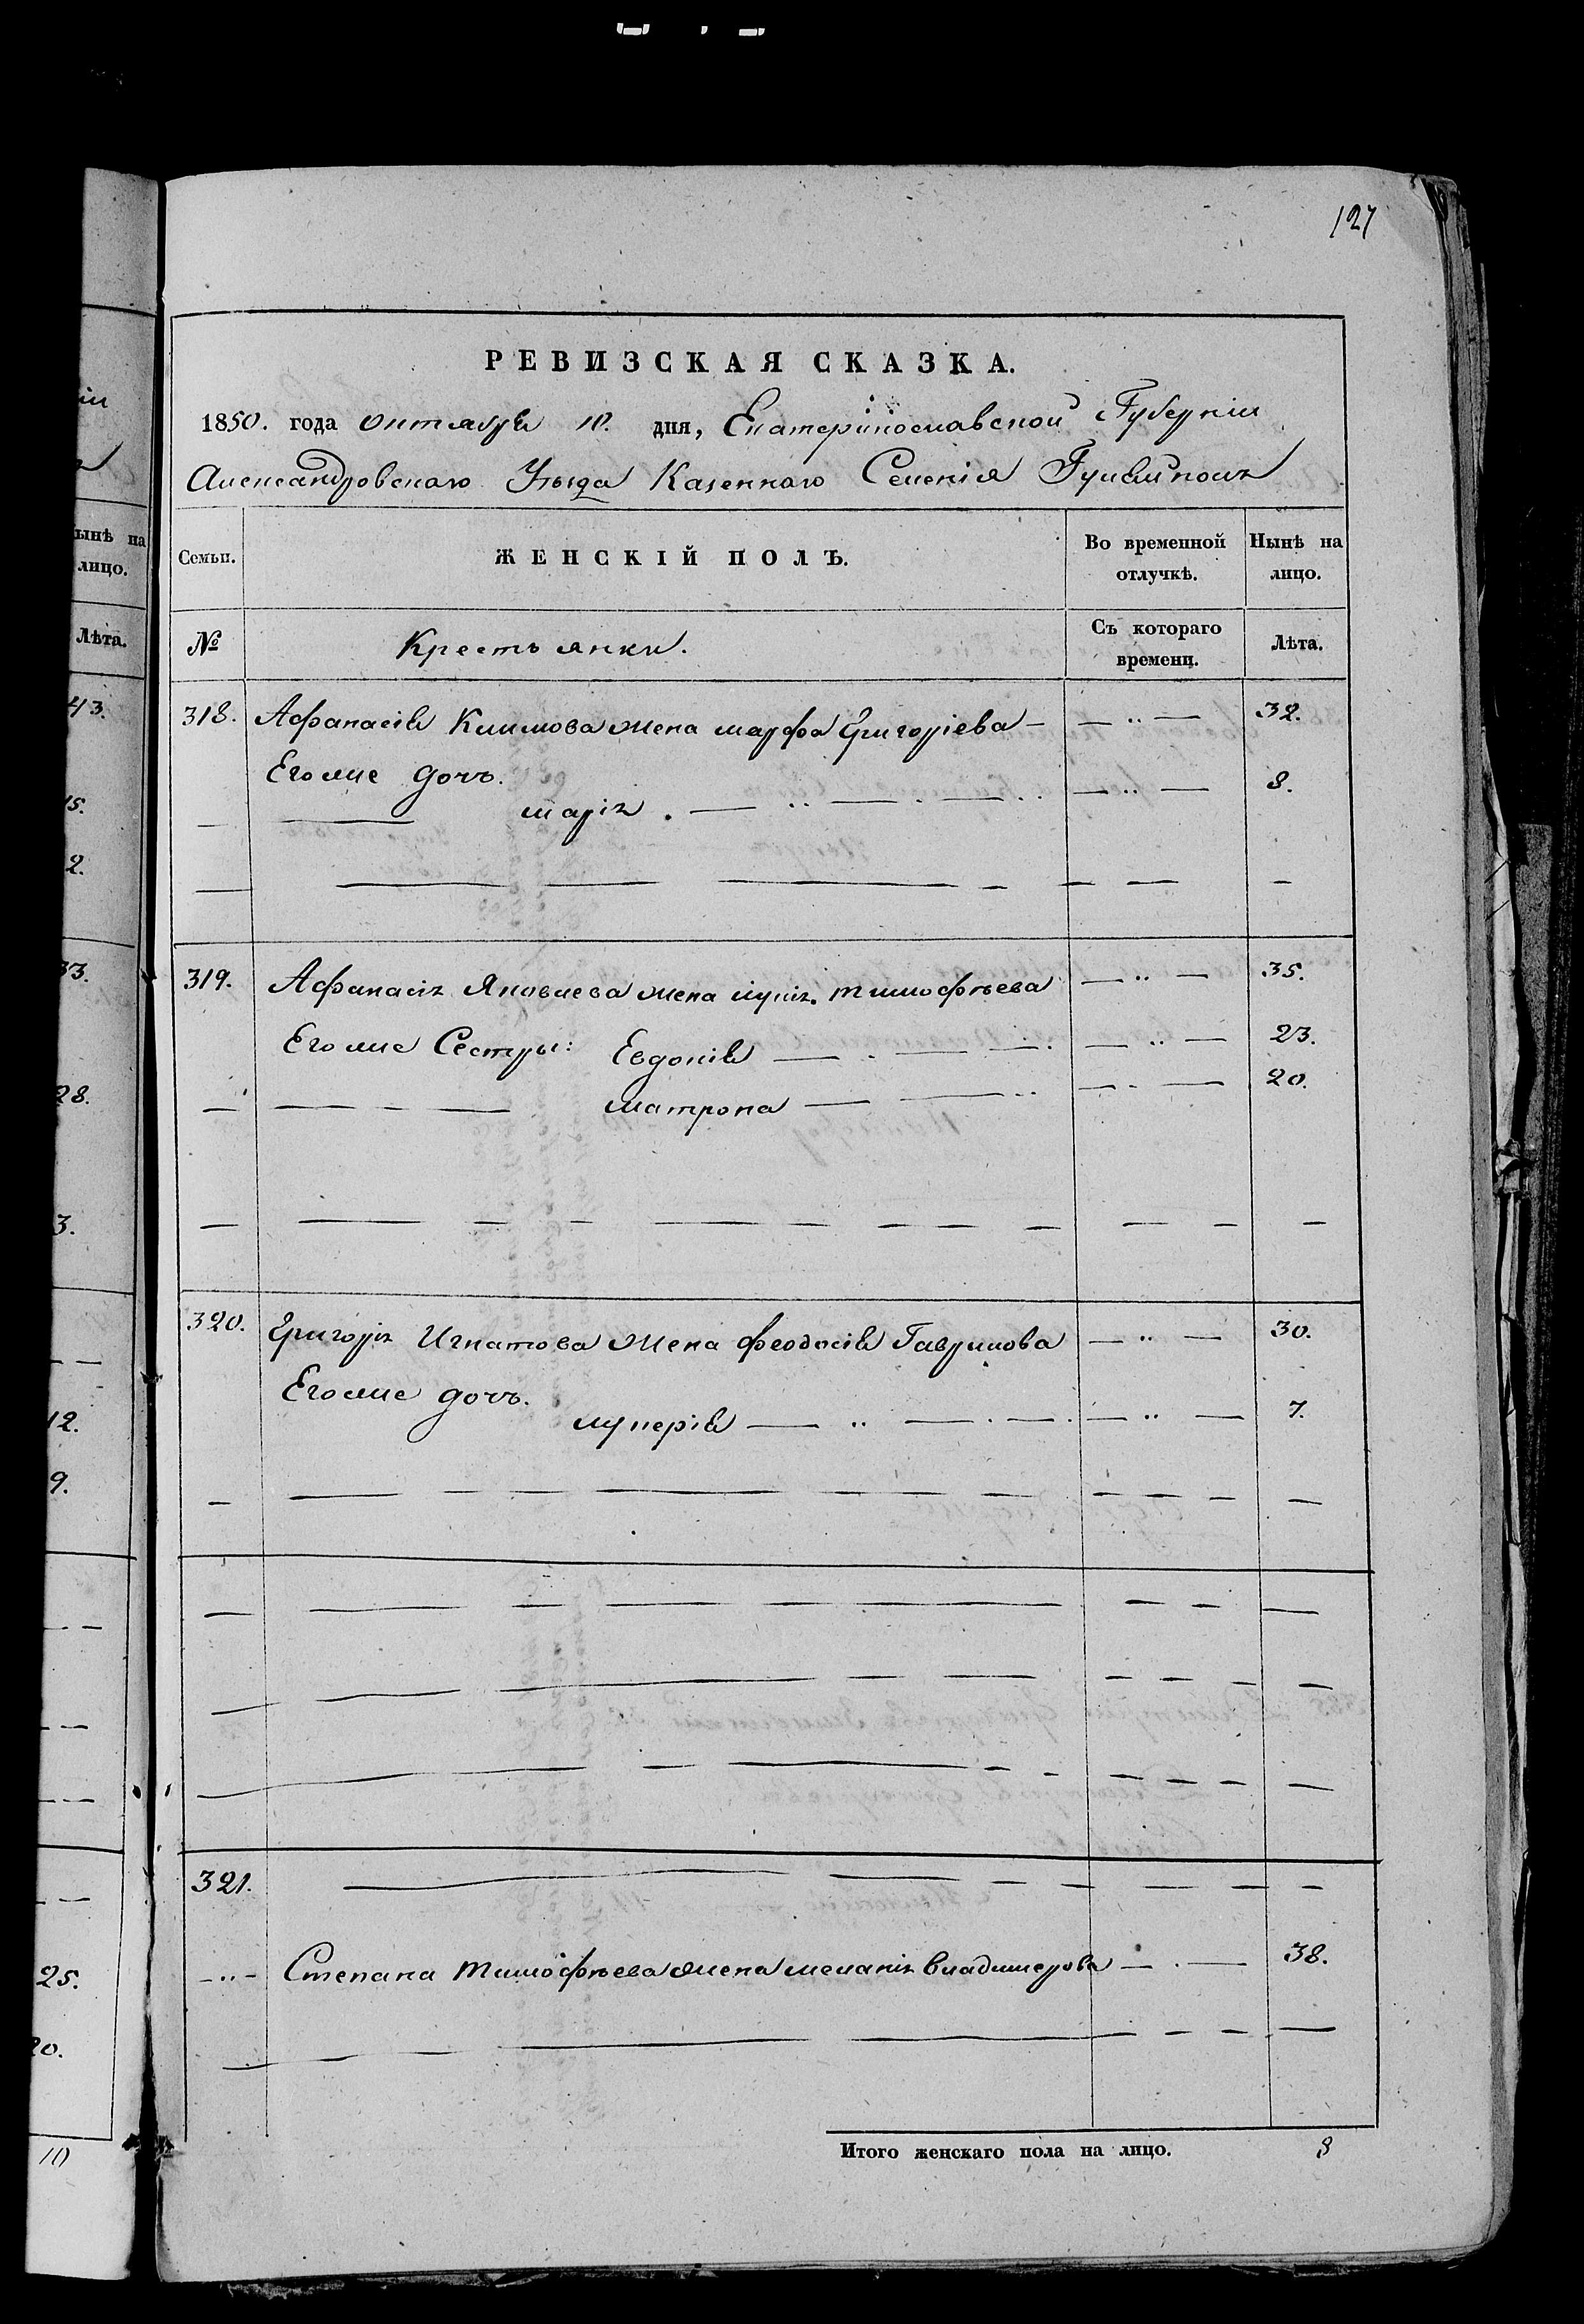 127
РЕВИЗСКАЯ СКАЗКА.
1850. года октября 10. дня, Екатеринославской Губернии
Александровскаго Уѣзда Казеннаго Селенія Гуляйполя
Семьи. ЖЕНСКІЙ ПОЛЪ. Во временной отлучкѣ. Нынѣ на лицо.
№ Крестьянки. Съ котораго времени. Лѣта.
318. Афанасія Климова жена марфа Григоріева — — „ — 32.
Его же дочь.
марія. — „ — . — . . — „ — 8.
319. Афанасія Яковлева жена тимофѣева — „ — 35.
Его же Сестры: Евдокія — . — — . — „ — 23.
матрона — — .. — . — 20.
320. Григорія Игнатова жена феодосія Гаврилова — „ — 30.
Его же дочь.
лукерія — „ — . — . — „ — 7.
321.
— „ — Степана тимофѣева жена меланія владимерова — . — 38.
Итого женскаго пола на лицо. 8
ынѣ на
лицо.
Лѣта.
43.
15.
2.
33.
28.
3.
12.
9.
25.
20.
10